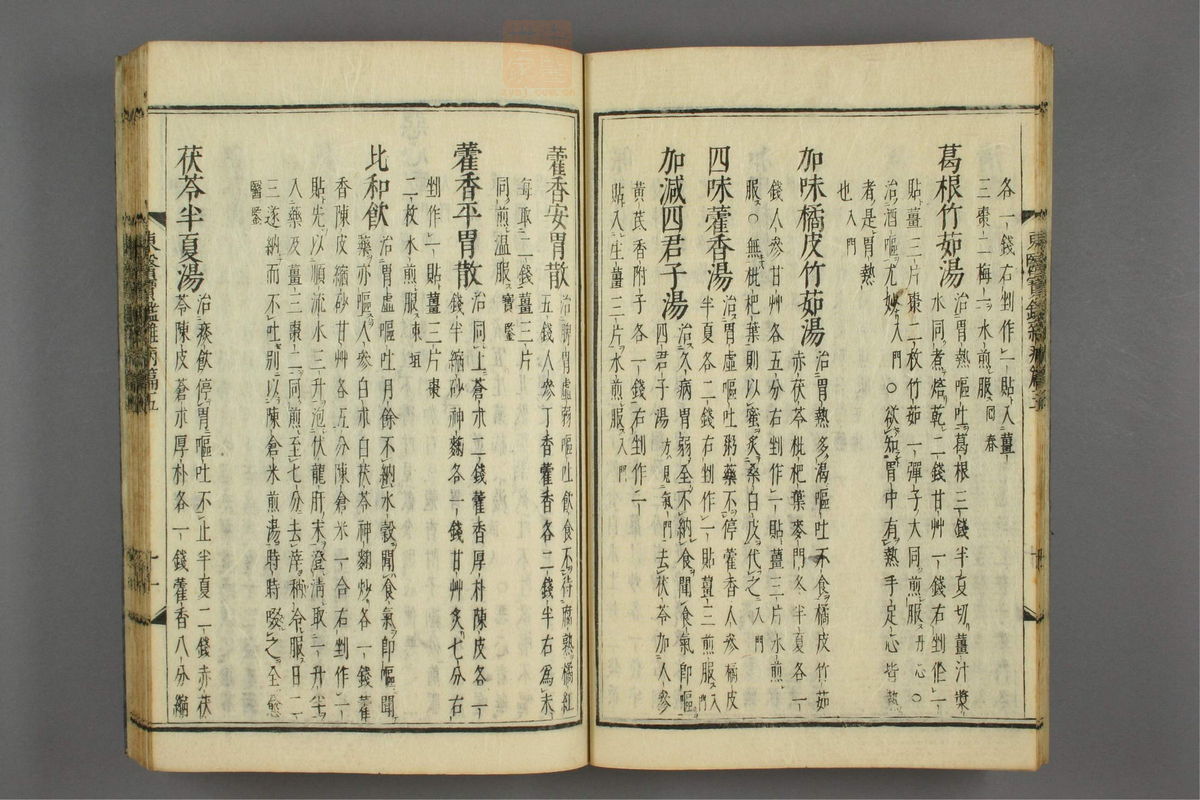 各一錢右剉作一貼入薑
三棗二梅一水煎服回春
葛根竹茹湯
治胃熱嘔吐葛根三錢半夏切薑汁漿
水同煮焙乾二錢甘艸一錢右剉作一
貼薑三片棗二枚竹茹一彈子大同煎服丹心○
治酒嘔尤妙入門○欲知胃中有熱手足心皆熱
者是胃熱
也入門
加味橘皮竹茹湯
治胃熱多渴嘔吐不食橘皮竹茹
赤茯苓枇杷葉麥門冬半夏各一
錢人參甘艸各五分右剉作一貼薑三片水煎
服○無枇杷葉則以蜜炙桑白皮代之入門
四味藿香湯
治胃虛嘔吐粥藥不停藿香人參橘皮
半夏各二錢右剉作一貼薑三煎服入門
加減四君子湯
治久病胃弱全不納食聞食氣卽嘔
四君子湯方見氣門去茯苓加人參
黃芪香附子各一錢右剉作一
貼入生薑三片水煎服入門
東醫寶鑑雜病篇五
十
藿香安胃散
治脾胃虛弱嘔吐飮食不待腐熟橘紅
五錢人參丁香藿香各二錢半右爲末
每取二錢薑三片
同煎溫服寶鑑
藿香平胃散
治同上蒼朮二錢藿香厚朴陳皮各一
錢半縮砂神麴各一錢甘艸炙七分右
剉作一貼薑三片棗
二枚水煎服東垣
比和飮
治胃虛嘔吐月餘不納水穀聞食氣卽嘔聞
藥亦嘔人參白朮白茯苓神麴炒各一錢藿
香陳皮縮砂甘艸各五分陳倉米一合右剉作一
貼先以順流水三升泡伏龍肝末澄淸取一升半
入藥及薑三棗二同煎至七分去滓稍冷服日二
三遂納而不吐別以陳倉米煎湯時時啜之全愈
醫鑑
茯苓半夏湯
治痰飮停胃嘔吐不止半夏二錢赤茯
苓陳皮蒼朮厚朴各一錢藿香八分縮
東醫寶鑑雜病篇五
十一